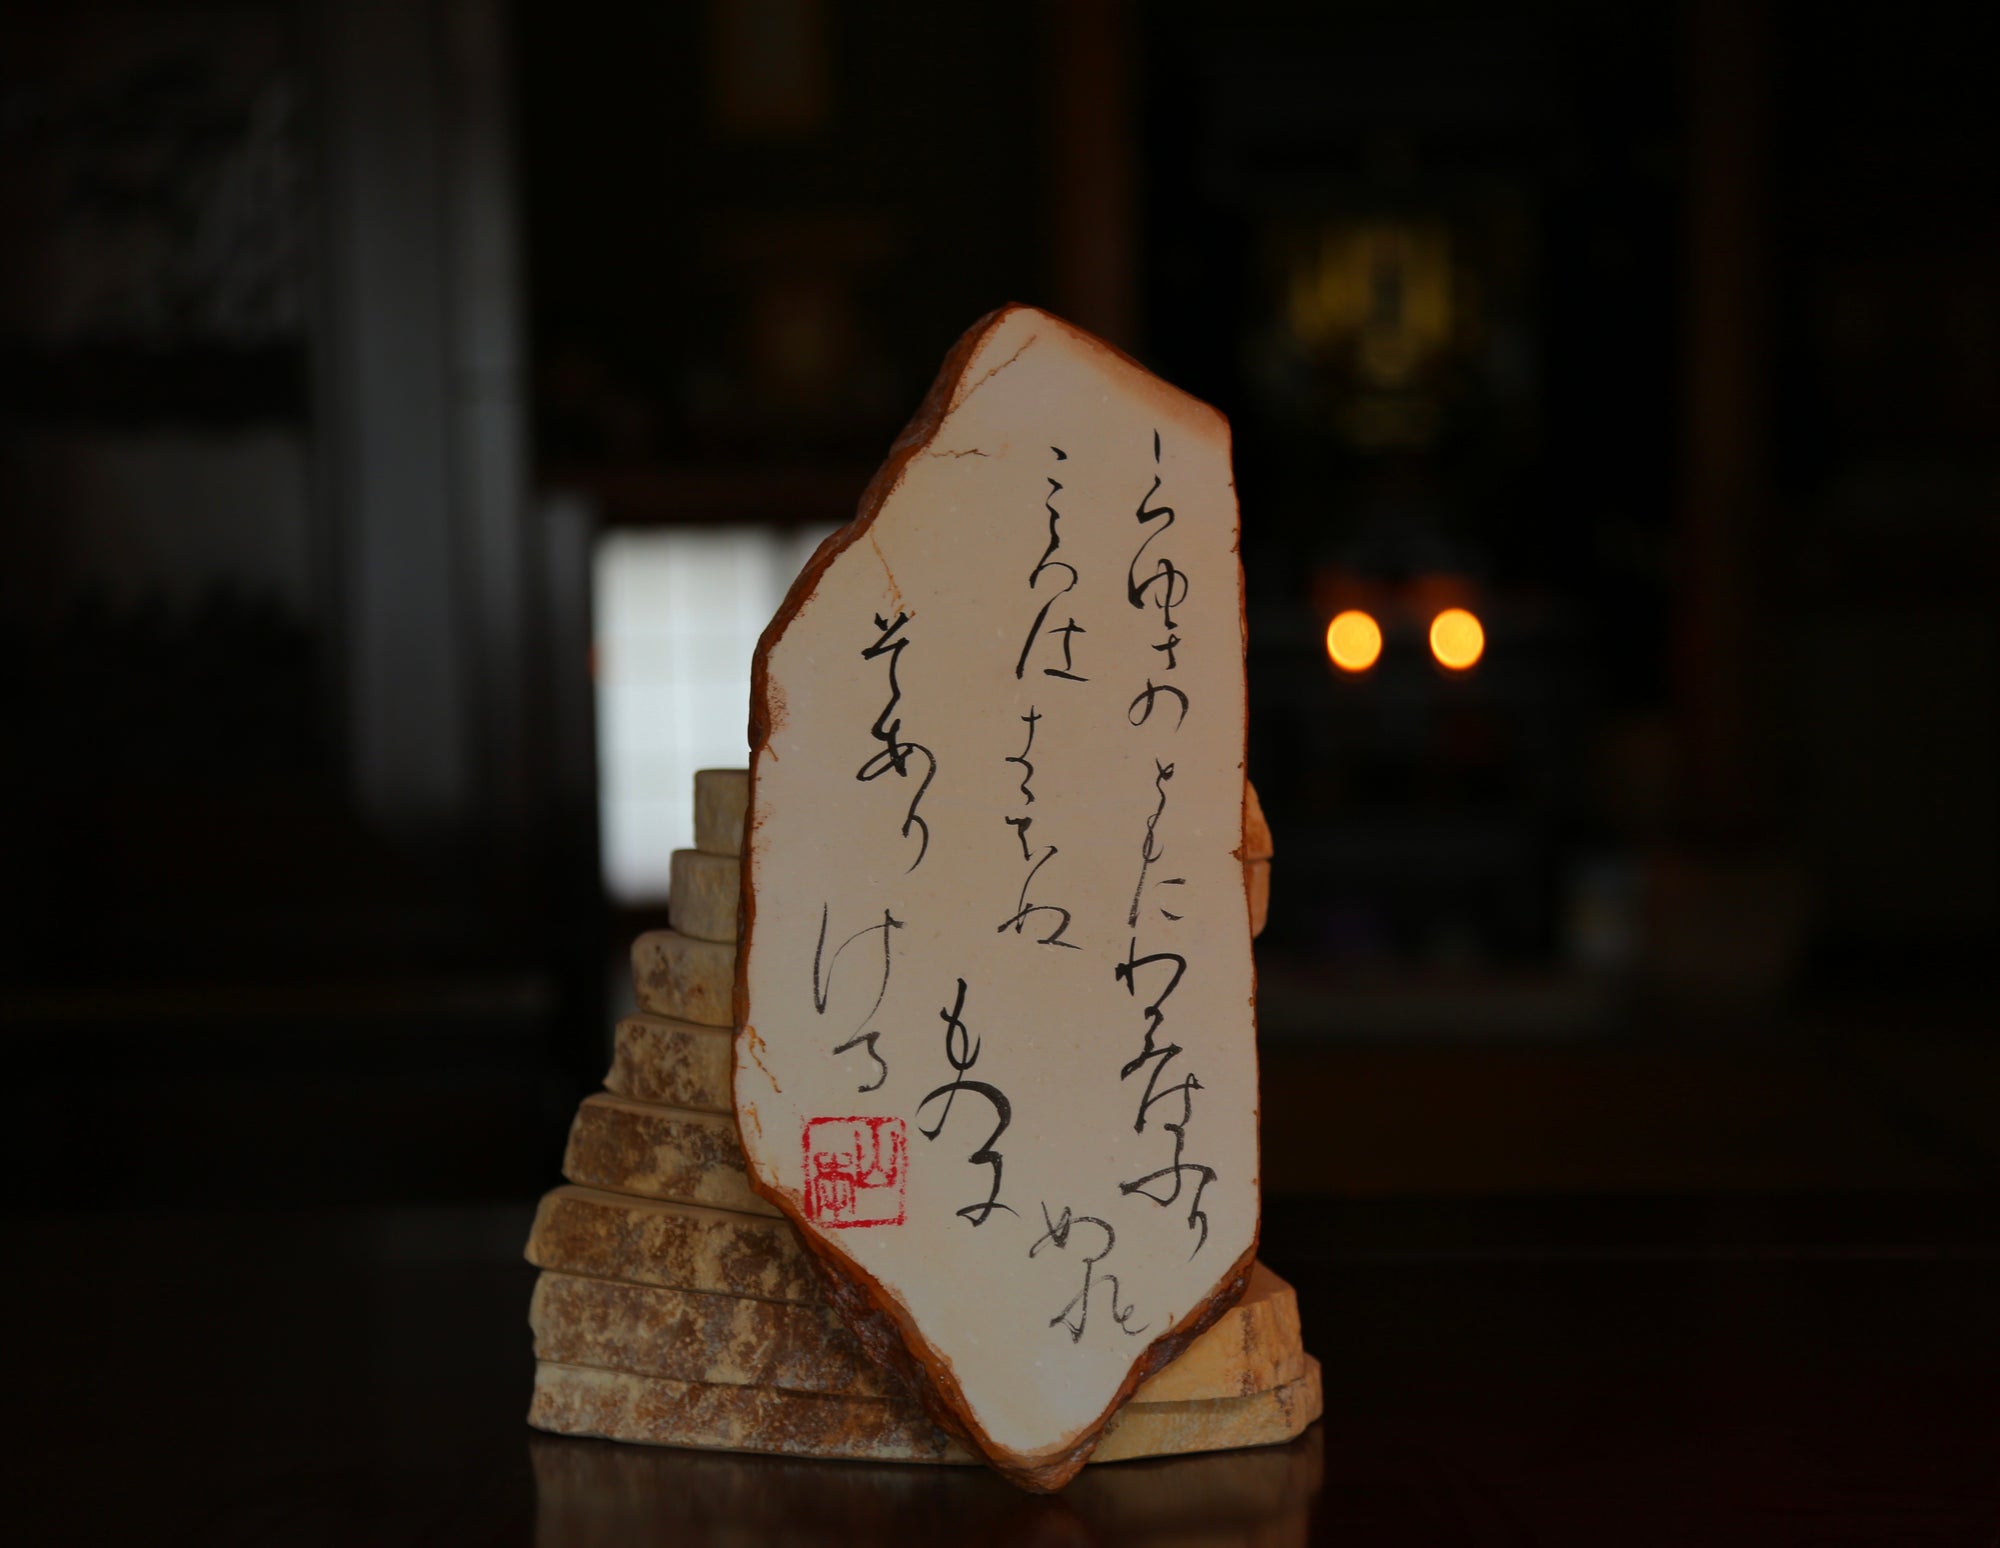 しらゆきのともにわかみはふり
ぬれと
こころはきえぬ
ものに
そありける